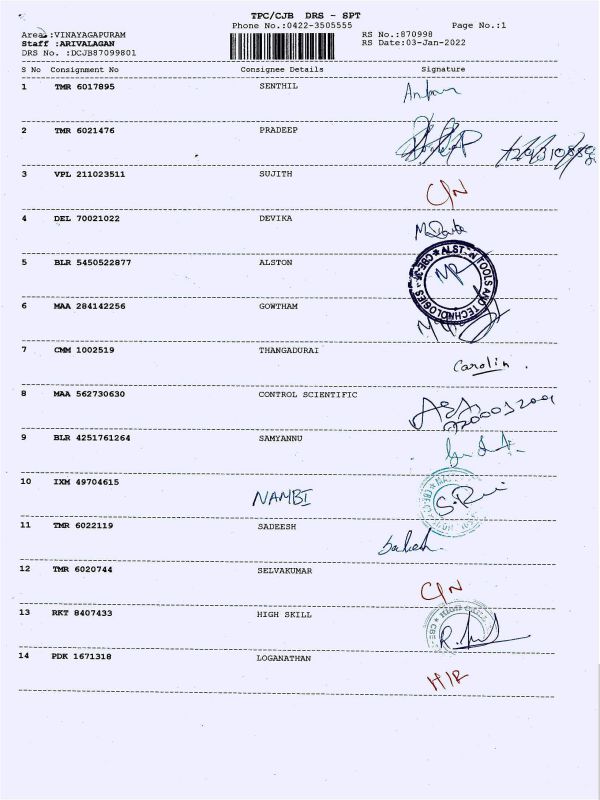 TPC/CJB DRS - SPT
Phone No.:0422-3505555 Page No.:1
Area :VINAYAGAPURAM RS No.:870998
Staff :ARIVALAGAN RS Date:03-Jan-2022
DRS No. :DCJB87099801
S No Consignment No Consignee Details Signature
1 TMR 6017895 SENTHIL
2 TMR 6021476 PRADEEP
3 VPL 211023511 SUJITH C/N
4 DEL 70021022 DEVIKA
5 BLR 5450522877 ALSTON
ALSTON TOOLS AND TECHNOLOGIES
6 MAA 284142256 GOWTHAM
7 CMM 1002519 THANGADURAI Carolin .
8 MAA 562730630 CONTROL SCIENTIFIC
9 BLR 4251761264 SAMYANNU
10 IXM 49704615 NAMBI
11 TMR 6022119 SADEESH
12 TMR 6020744 SELVAKUMAR C/N
13 RKT 8407433 HIGH SKILL
14 PDK 1671318 LOGANATHAN